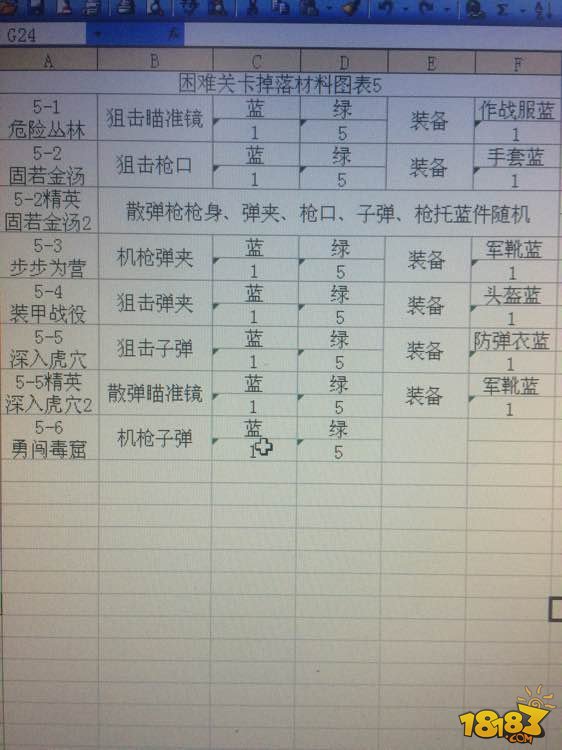 G24
A B C D E F
困难关卡掉落材料图表5
5-1 危险丛林 狙击瞄准镜 蓝 1 绿 5 装备 作战服蓝 1
5-2 固若金汤 狙击枪口 蓝 1 绿 5 装备 手套蓝 1
5-2精英 固若金汤2 散弹枪枪身、弹夹、枪口、子弹、枪托蓝件随机
5-3 步步为营 机枪弹夹 蓝 1 绿 5 装备 军靴蓝 1
5-4 装甲战役 狙击弹夹 蓝 1 绿 5 装备 头盔蓝 1
5-5 深入虎穴 狙击子弹 蓝 1 绿 5 装备 防弹衣蓝 1
5-5精英 深入虎穴2 散弹瞄准镜 蓝 1 绿 5 装备 军靴蓝 1
5-6 勇闯毒窟 机枪子弹 蓝 1 绿 5
18183
.COM